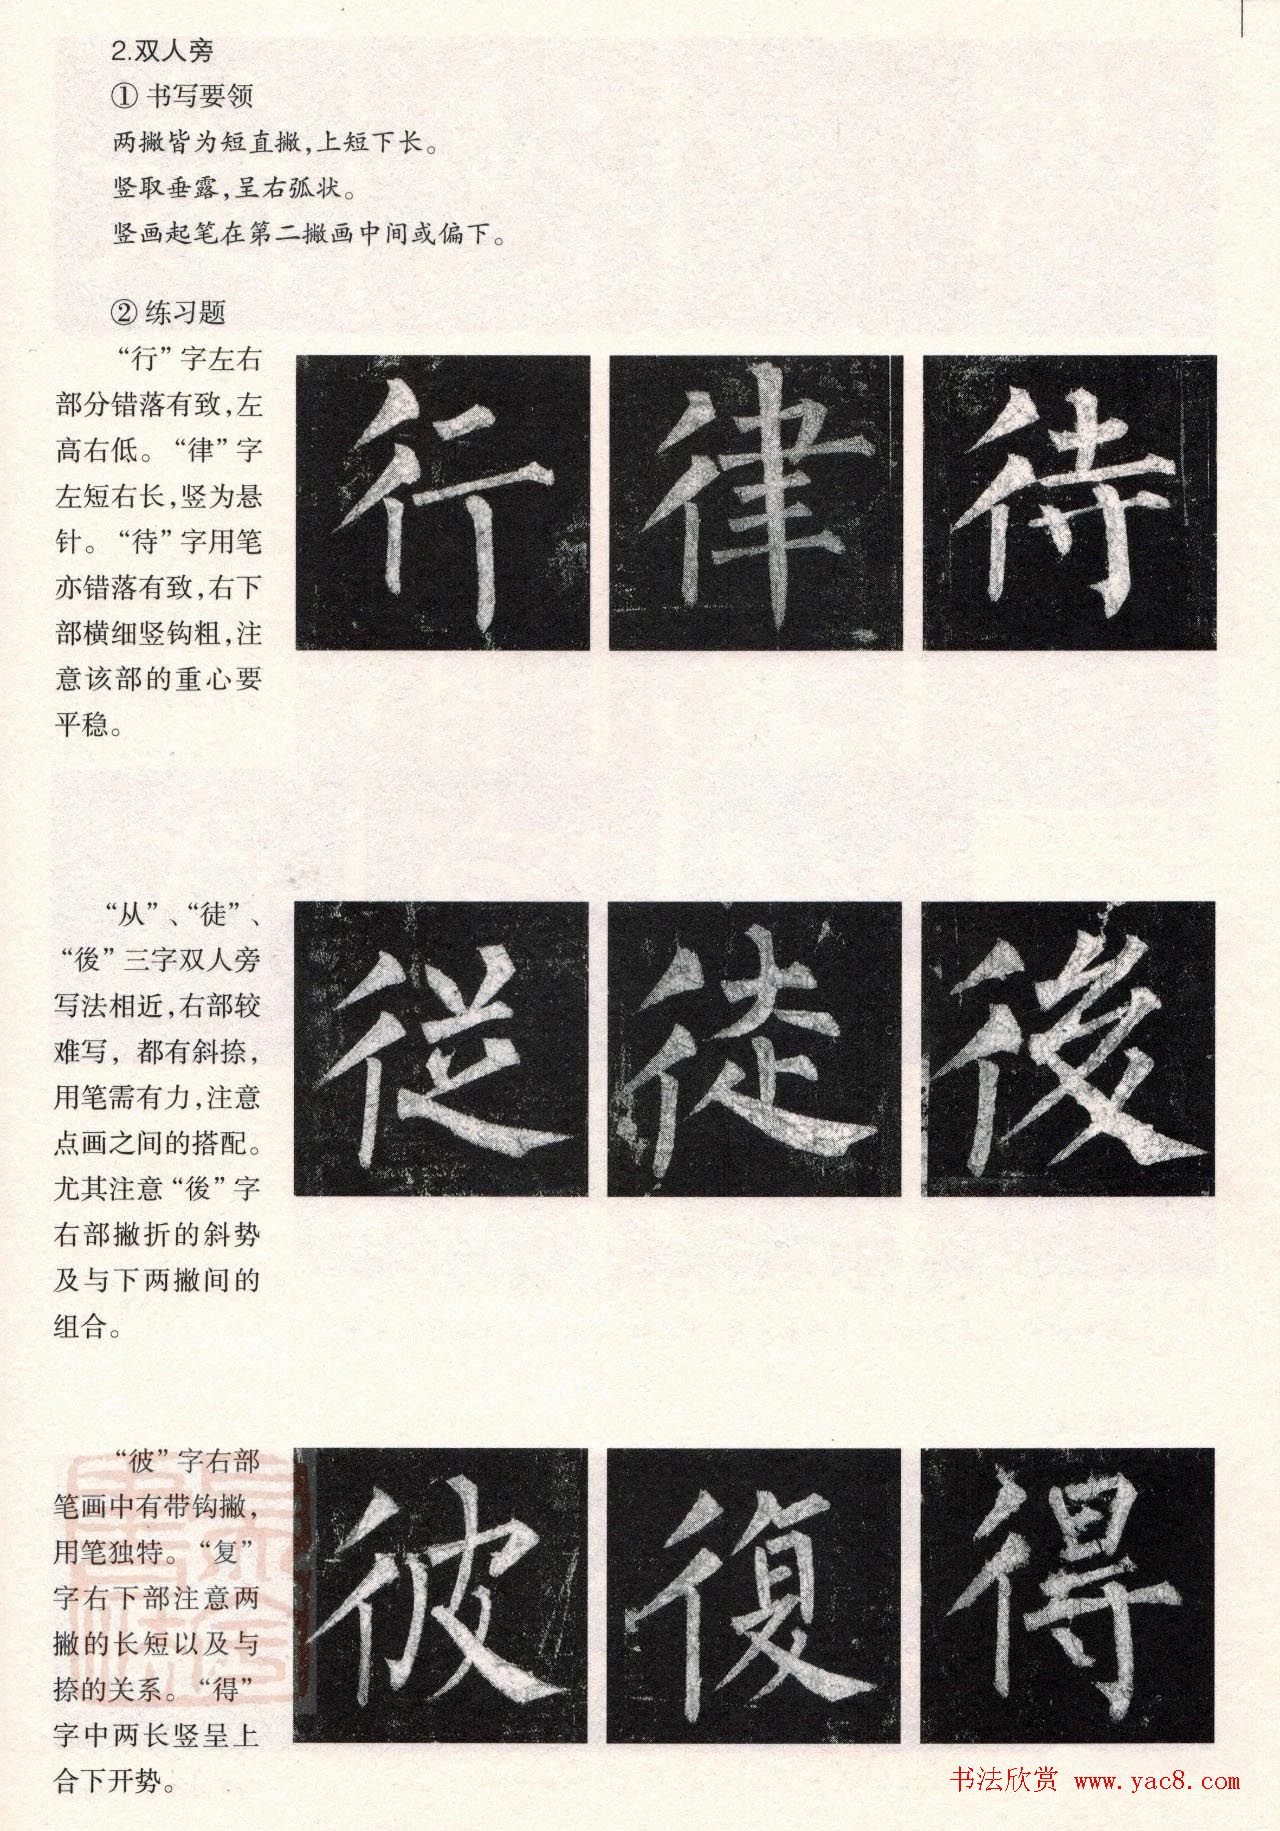 2.双人旁
① 书写要领
两撇皆为短直撇,上短下长。
竖取垂露,呈右弧状。
竖画起笔在第二撇画中间或偏下。
② 练习题
“行”字左右
部分错落有致,左
高右低。“律”字
左短右长,竖为悬
针。“待”字用笔
亦错落有致,右下
部横细竖钩粗,注
意该部的重心要
平稳。
行 律 待
“从”、“徒”、
“後”三字双人旁
写法相近,右部较
难写,都有斜捺,
用笔需有力,注意
点画之间的搭配。
尤其注意“後”字
右部撇折的斜势
及与下两撇间的
组合。
従 徒 後
“彼”字右部
笔画中有带钩撇,
用笔独特。“复”
字右下部注意两
撇的长短以及与
捺的关系。“得”
字中两长竖呈上
合下开势。
彼 復 得
书法欣赏 www.yac8.com